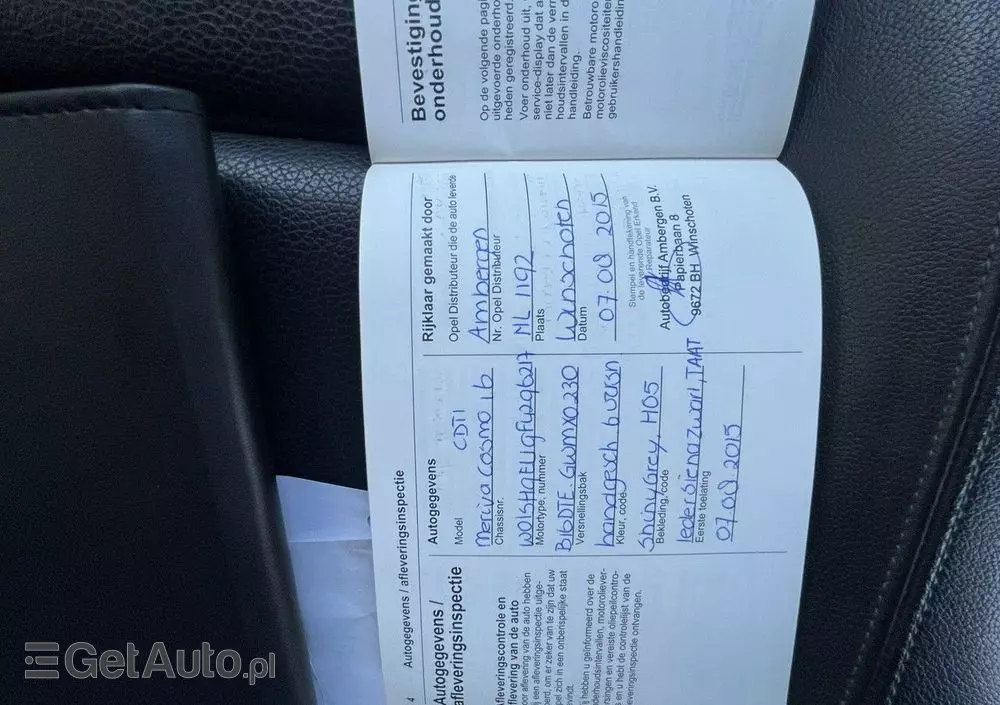 4
Autogegevens / afleveringsinspectie
Autogegevens /
afleveringsinspectie
Afleveringscontrole en
aflevering van de auto
oor aflevering van de auto hebben
ij een afleveringsinspectie uitge-
erd, om er zeker van te zijn dat uw
pel zich in een onberispelijke staat
evindt.
ij hebben u geïnformeerd over de
nderhoudsintervallen, motoroliever-
rsingen en vereiste oliepeilcontro-
s en u hebt de controlelijst van de
veringsinspectie ontvangen.
Autogegevens
Model
CDTI
Meriva Cosmo 1.6
Chassisnr.
Motortype, nummer
B16DTE
Versnellingsbak
handgesch 6 versn
Kleur, code
Shiny Grey H05
Bekleding, code
Eerste toelating
07.08.2015
Rijklaar gemaakt door
Opel Distributeur die de auto leverde
Ambergen
Nr. Opel Distributeur
NL 1192
Plaats
Winschoten
Datum
07.08 2015
Stempel en handtekening van
de leverende Opel Erkend
Reparateur
Autobedrijf Ambergen B.V.
Papierbaan 8
9672 BH Winschoten
Bevestiging
onderhoud
Op de volgende pagi
uitgevoerde onderho
heden geregistreerd.
Voer onderhoud uit,
service-display dat a
niet later dan de verm
houdsintervallen in d
handleiding.
Betrouwbare motoro
motorolieviscositeiten
gebruikershandleiding
GetAuto.pl